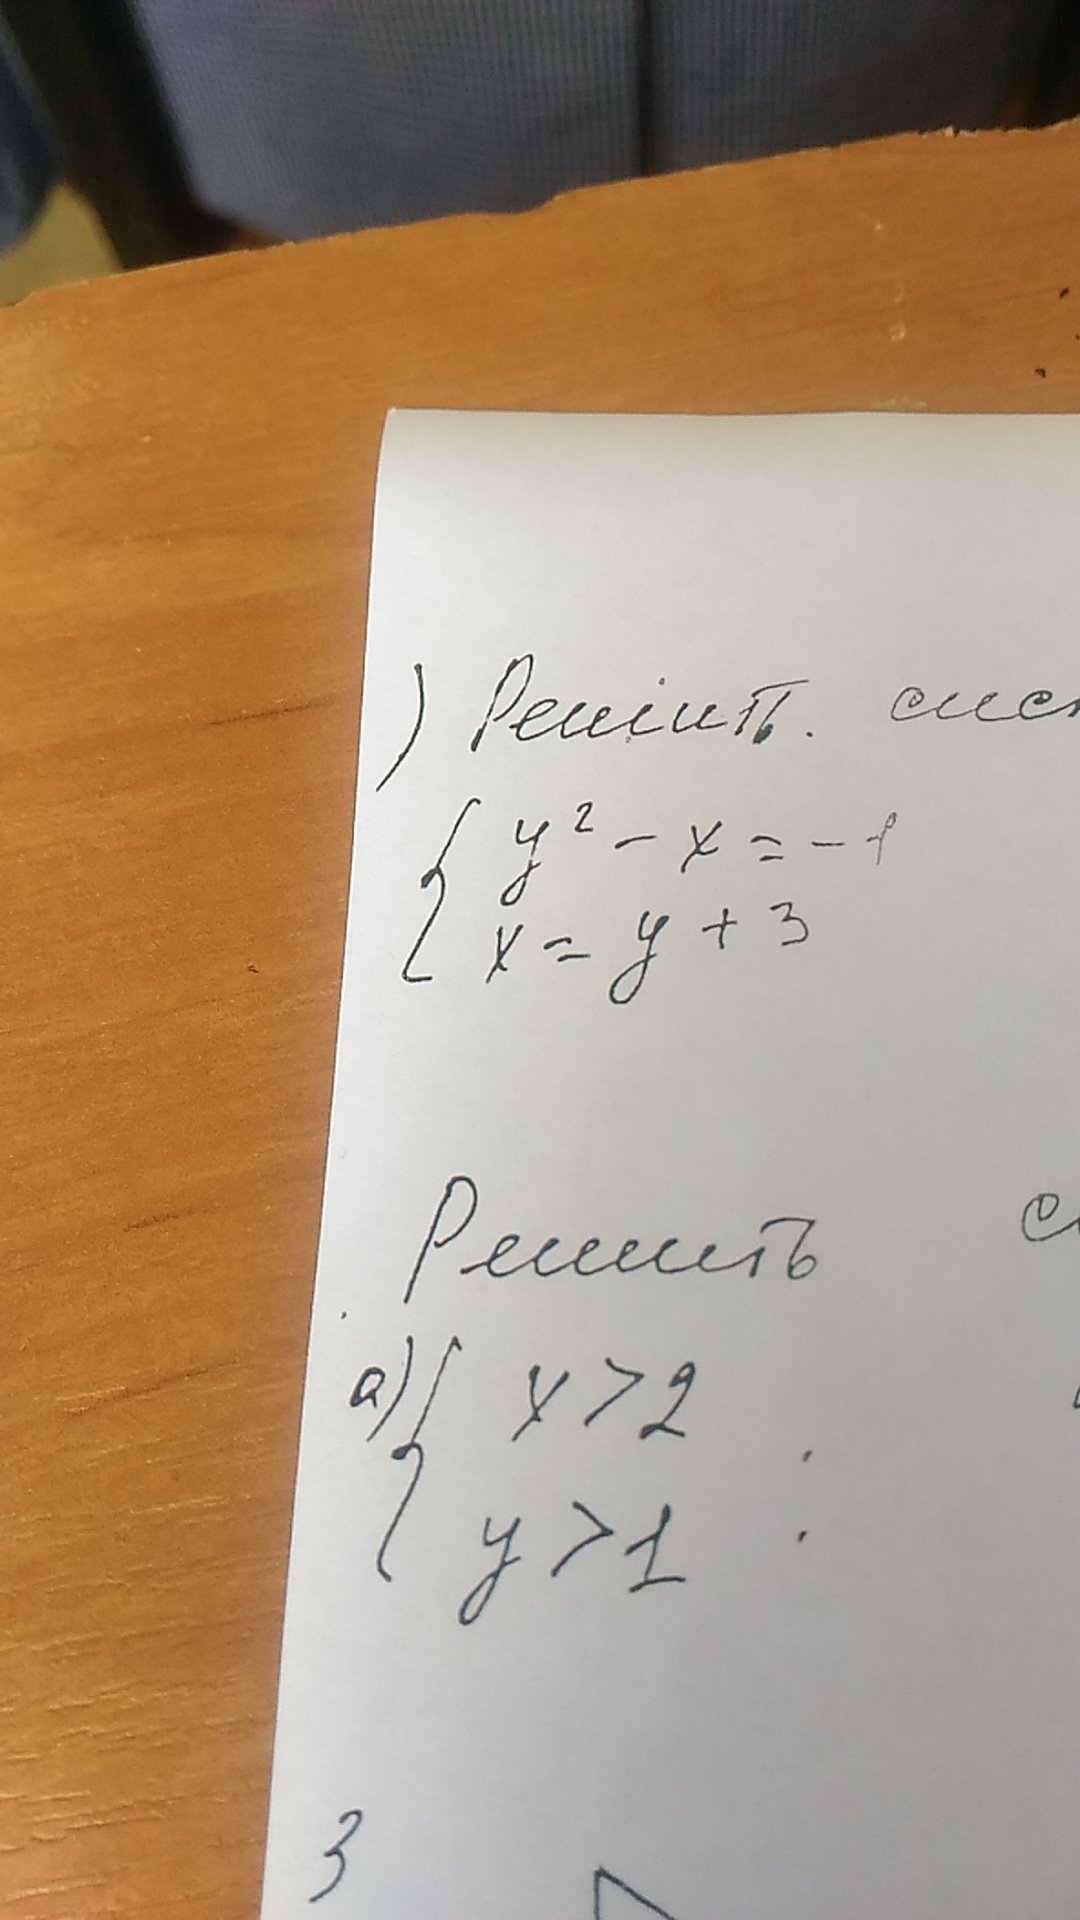 ) Решить. сист
{ y² - x = -1
x = y + 3
Решить
а) { x > 2
y > 1 ;
3